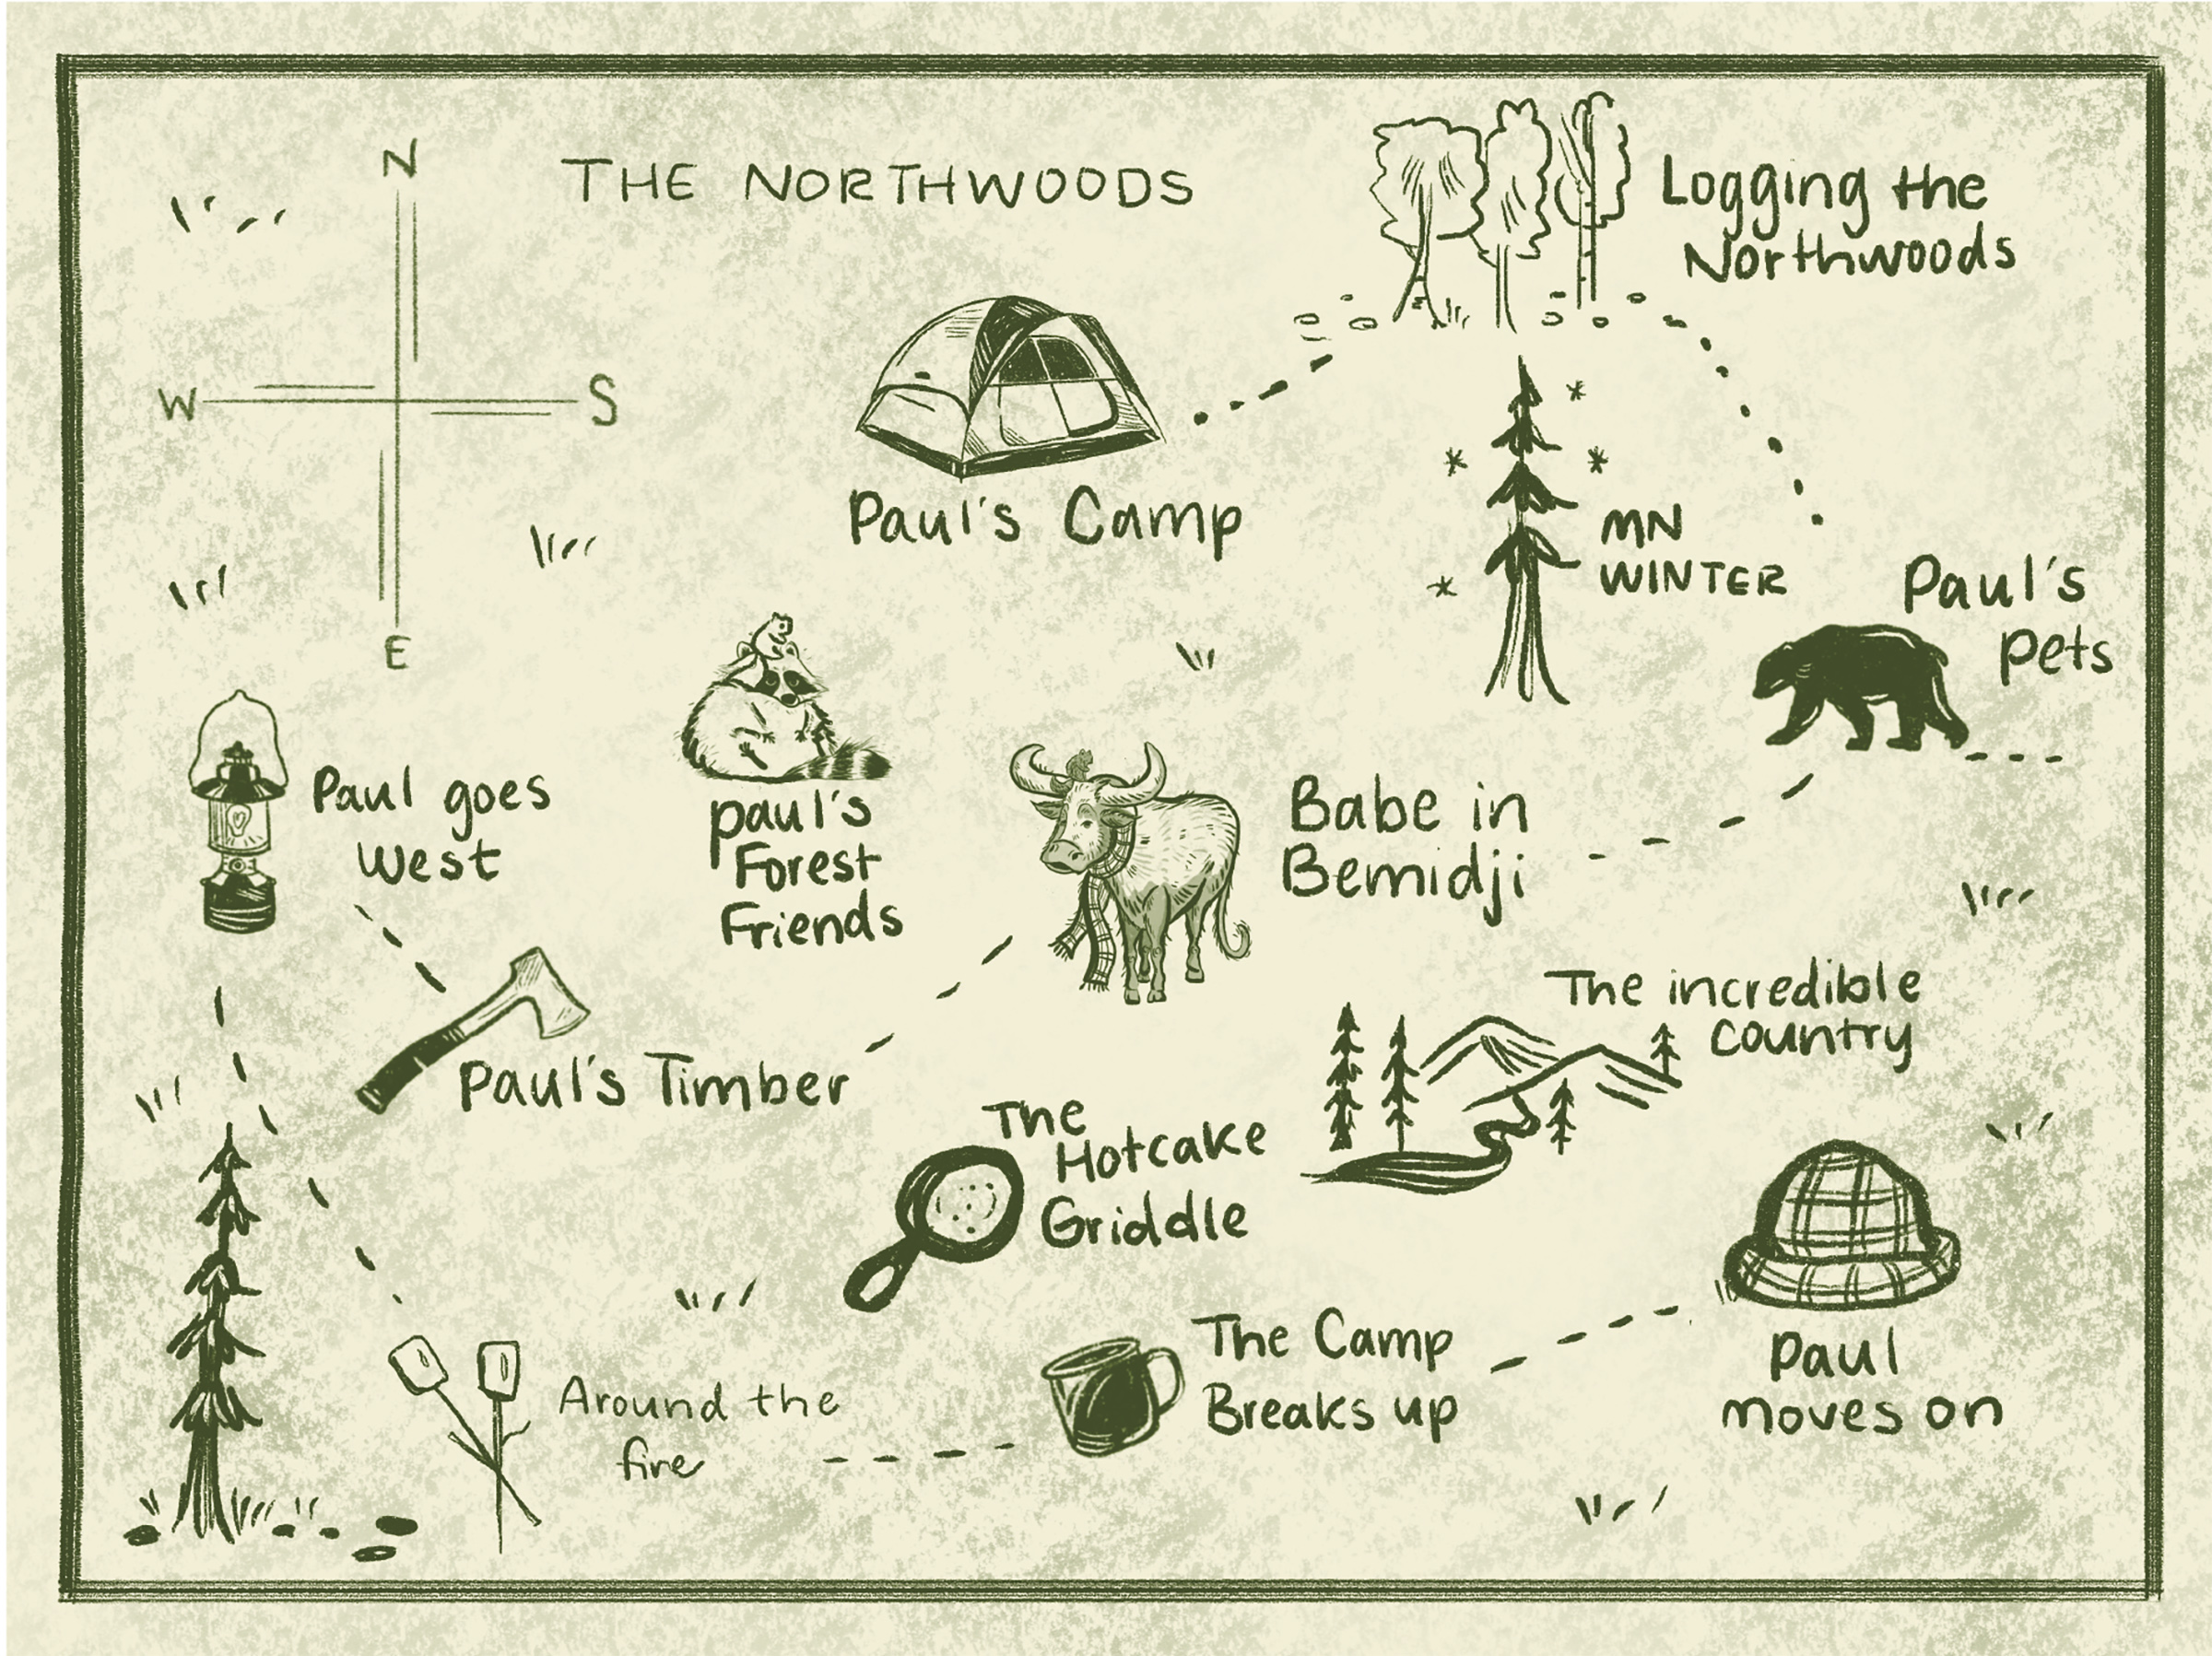 N
THE NORTHWOODS
W
S
E
Logging the
Northwoods
Paul's Camp
MN
WINTER
Paul's
Pets
Paul goes
West
Paul's
Forest
Friends
Babe in
Bemidji
Paul's Timber
The incredible
country
The
Hotcake
Griddle
Around the
fire
The Camp
Breaks up
Paul
moves on